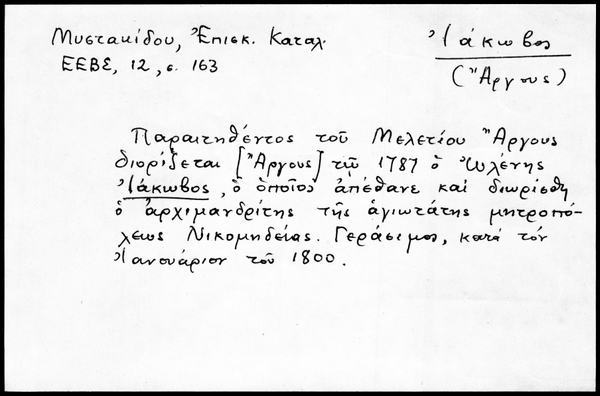 Μυστακίδου, Ἐπισκ. Καταλ.
ΕΕΒΣ, 12, σ. 163
Ἰάκωβος
(Ἄργους)
Παραιτηθέντος τοῦ Μελετίου Ἄργους
διορίζεται [Ἄργους] τῷ 1787 ὁ Ὠλένης
Ἰάκωβος, ὁ ὁποῖος ἀπέθανε καὶ διωρίσθη
ὁ ἀρχιμανδρίτης τῆς ἁγιωτάτης μητροπό-
λεως Νικομηδείας. Γεράσιμος, κατά τόν
Ἰανουάριον τοῦ 1800.